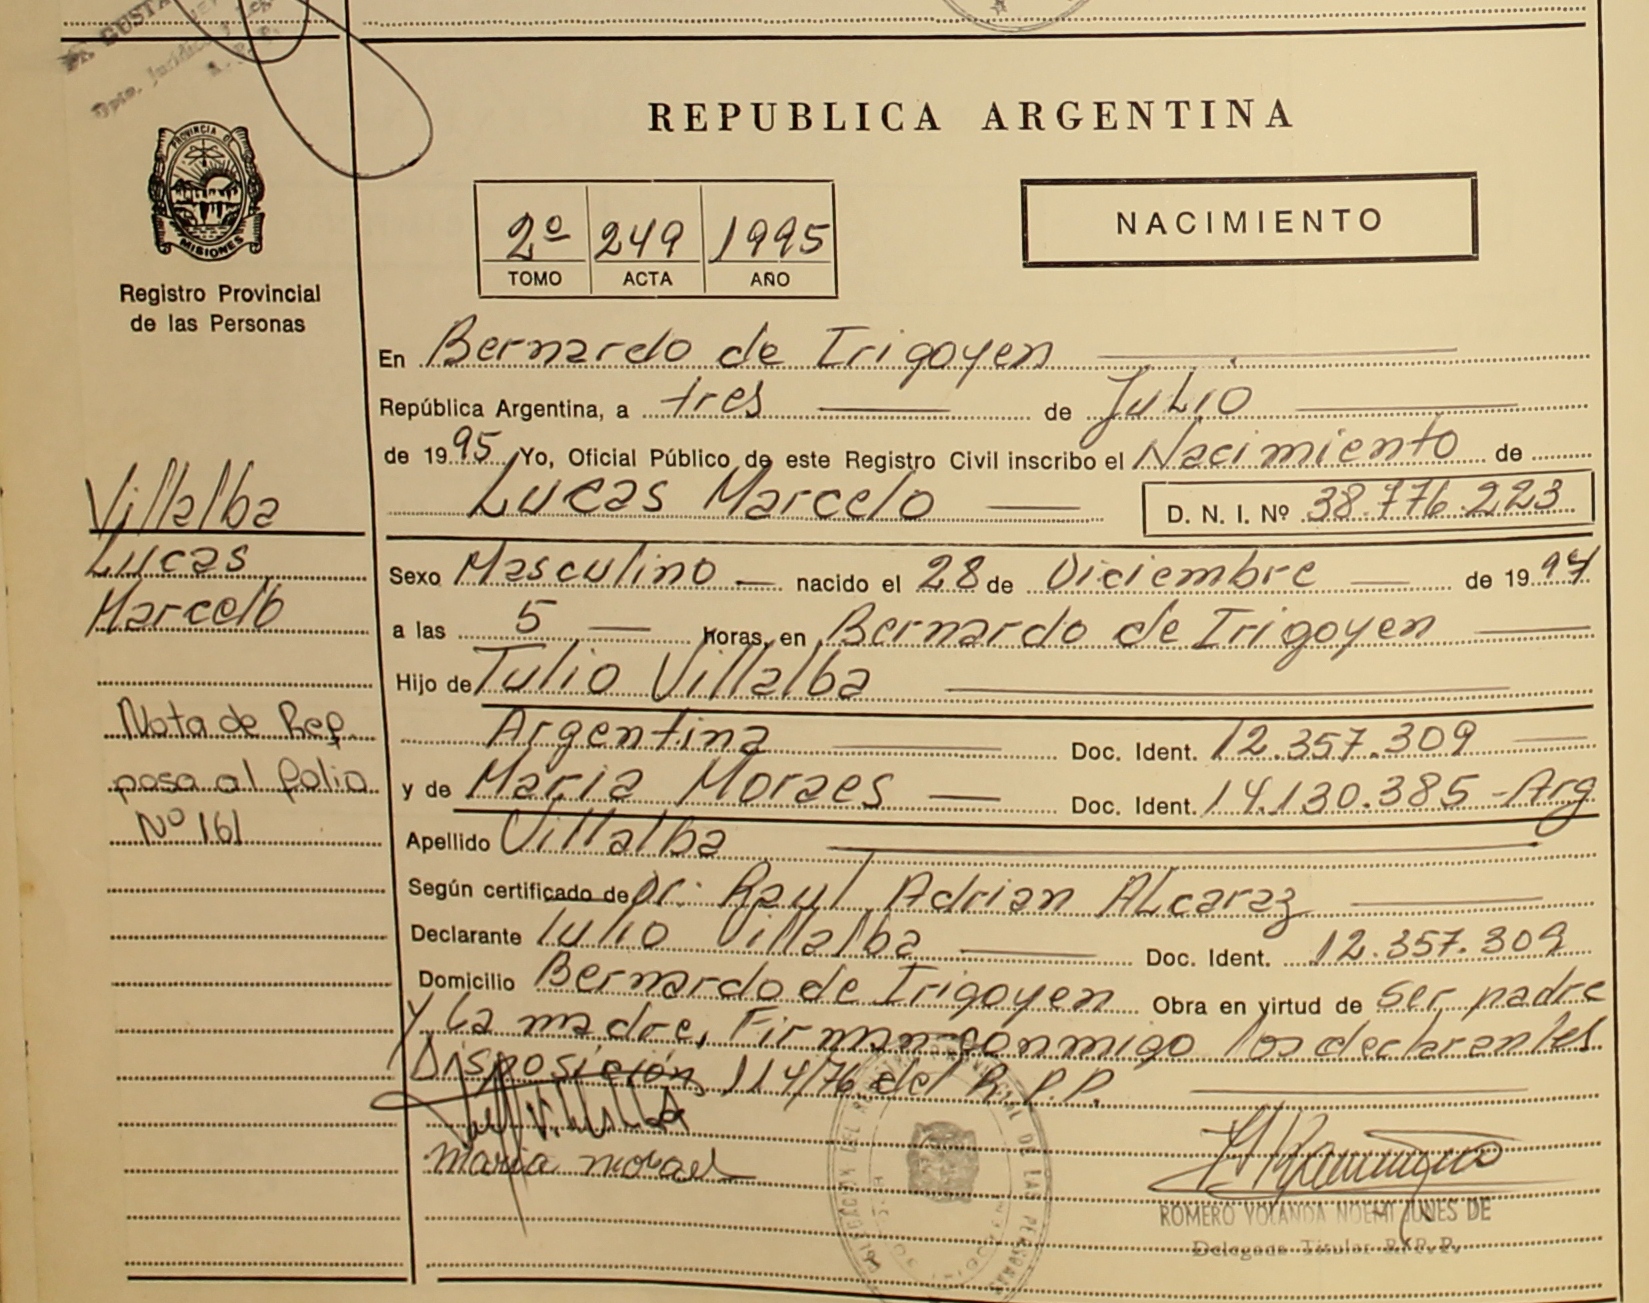 REPUBLICA ARGENTINA
PROVINCIA DE
MISIONES
Registro Provincial
de las Personas
2º 249 1995
TOMO ACTA AÑO
NACIMIENTO
En Bernardo de Irigoyen
República Argentina, a tres de Julio
de 1995 Yo, Oficial Público de este Registro Civil inscribo el Nacimiento de
Lucas Marcelo D. N. I. Nº 38.776.223
Villalba
Lucas
Marcelo
Sexo Masculino nacido el 28 de Diciembre de 1994
a las 5 horas, en Bernardo de Irigoyen
Hijo de Tulio Villalba
Argentina Doc. Ident. 12.357.309
y de Maria Moraes Doc. Ident. 14.130.385 - Arg
Nota de Ref.
pasa al folio
Nº 161
Apellido Villalba
Según certificado de Dr: Raul Adrian Alcaraz
Declarante Tulio Villalba Doc. Ident. 12.357.309
Domicilio Bernardo de Irigoyen Obra en virtud de ser padre
y la madre, Firman conmigo los declarantes
Disposición 114/76 del R.P.P.
maria moraes
ROMERO YOLANDA NOEMI DE
Delegada Titular R.P.P.